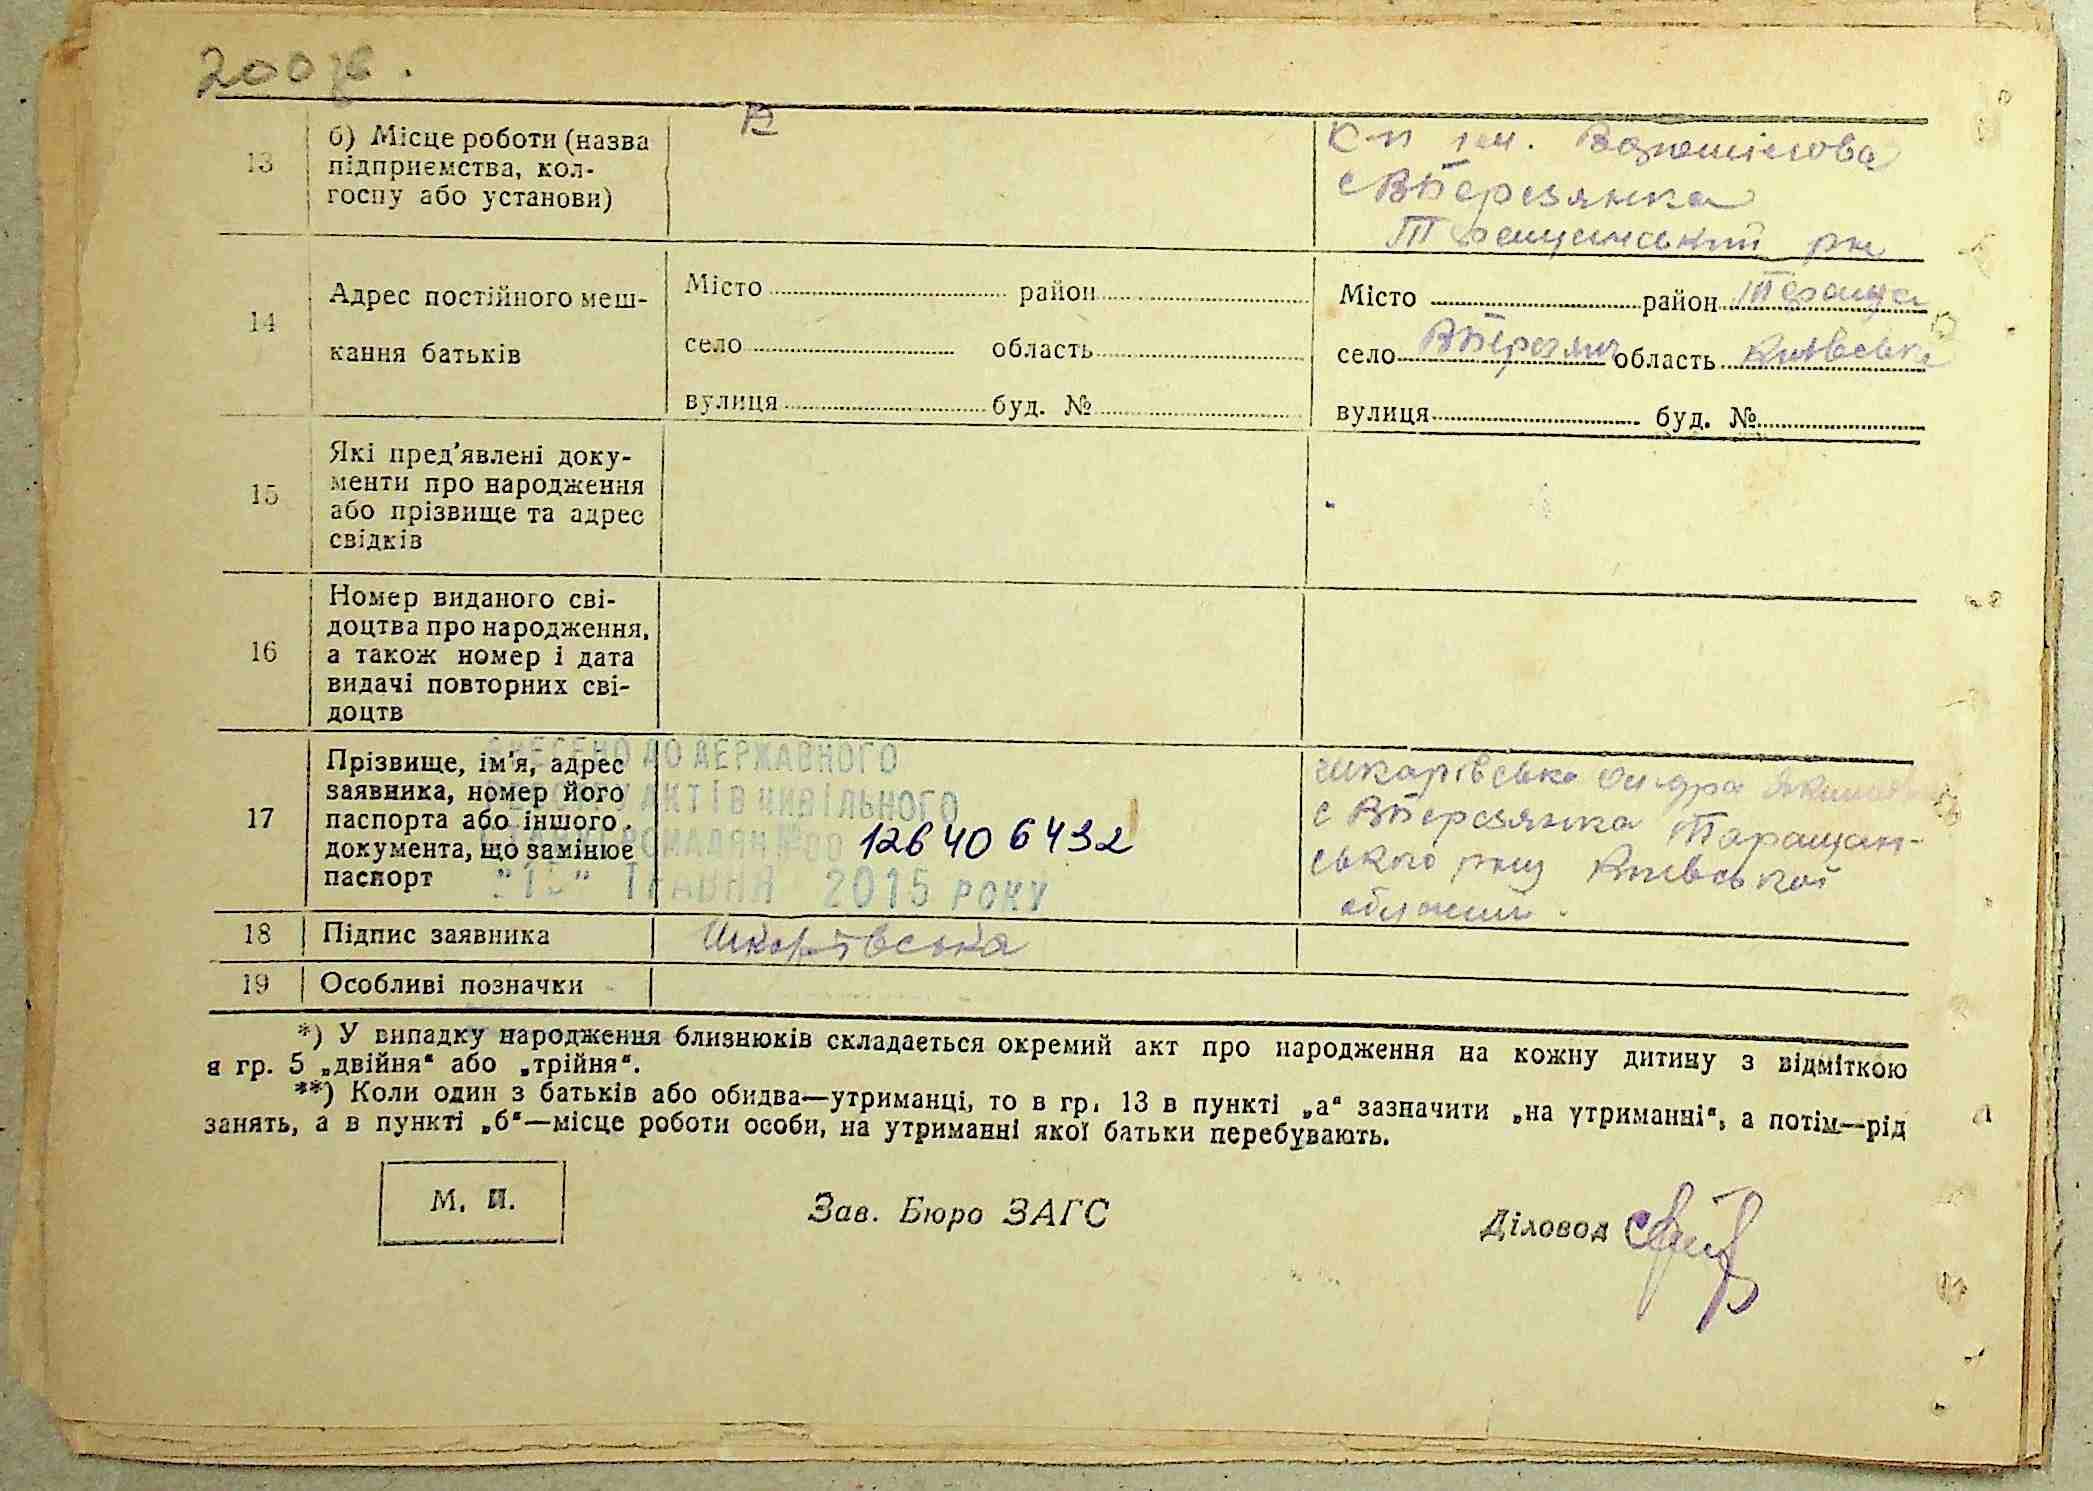 200 зв.
13
б) Місце роботи (назва
підприємства, кол-
госпу або установи)
К-п ім. Ворошилова
с ВБерезянка
Таращанський рн
14
Адрес постійного меш-
кання батьків
Місто район
село область
вулиця буд. №
Місто район Тараща
село ВБерезян область Київська
вулиця буд. №
15
Які пред’явлені доку-
менти про народження
або прізвище та адрес
свідків
16
Номер виданого сві-
доцтва про народження,
а також номер і дата
видачі повторних сві-
доцтв
17
Прізвище, ім’я, адрес
заявника, номер його
паспорта або іншого
документа, що замінює
паспорт
ВНЕСЕНО ДО ДЕРЖАВНОГО
РЕЄСТРУ АКТІВ ЦИВІЛЬНОГО
СТАНУ ГРОМАДЯН №00 126406432
ТРАВНЯ 2015 РОКУ
Шкарівська
с ВБерезянка Таращан-
ського рну Київської
області.
18 Підпис заявника Шкарівська
19 Особливі позначки
*) У випадку народження близнюків складається окремий акт про народження на кожну дитину з відміткою
в гр. 5 „двійня“ або „трійня“.
**) Коли один з батьків або обидва—утриманці, то в гр. 13 в пункті „а“ зазначити „на утриманні“, а потім—рід
занять, а в пункті „б“—місце роботи особи, на утриманні якої батьки перебувають.
М. П.
Зав. Бюро ЗАГС
Діловод